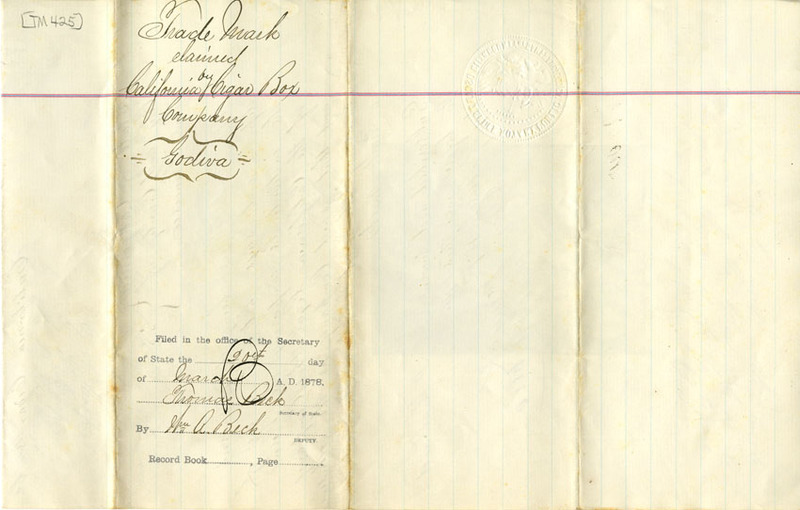 [TM 425]
Trade Mark
claimed
by
California Cigar Box
Company
Godiva
Filed in the office of the Secretary
of State the day
of March A. D. 1878.
Thomas Beck
Secretary of State.
By Wm A. Beck
DEPUTY.
Record Book , Page